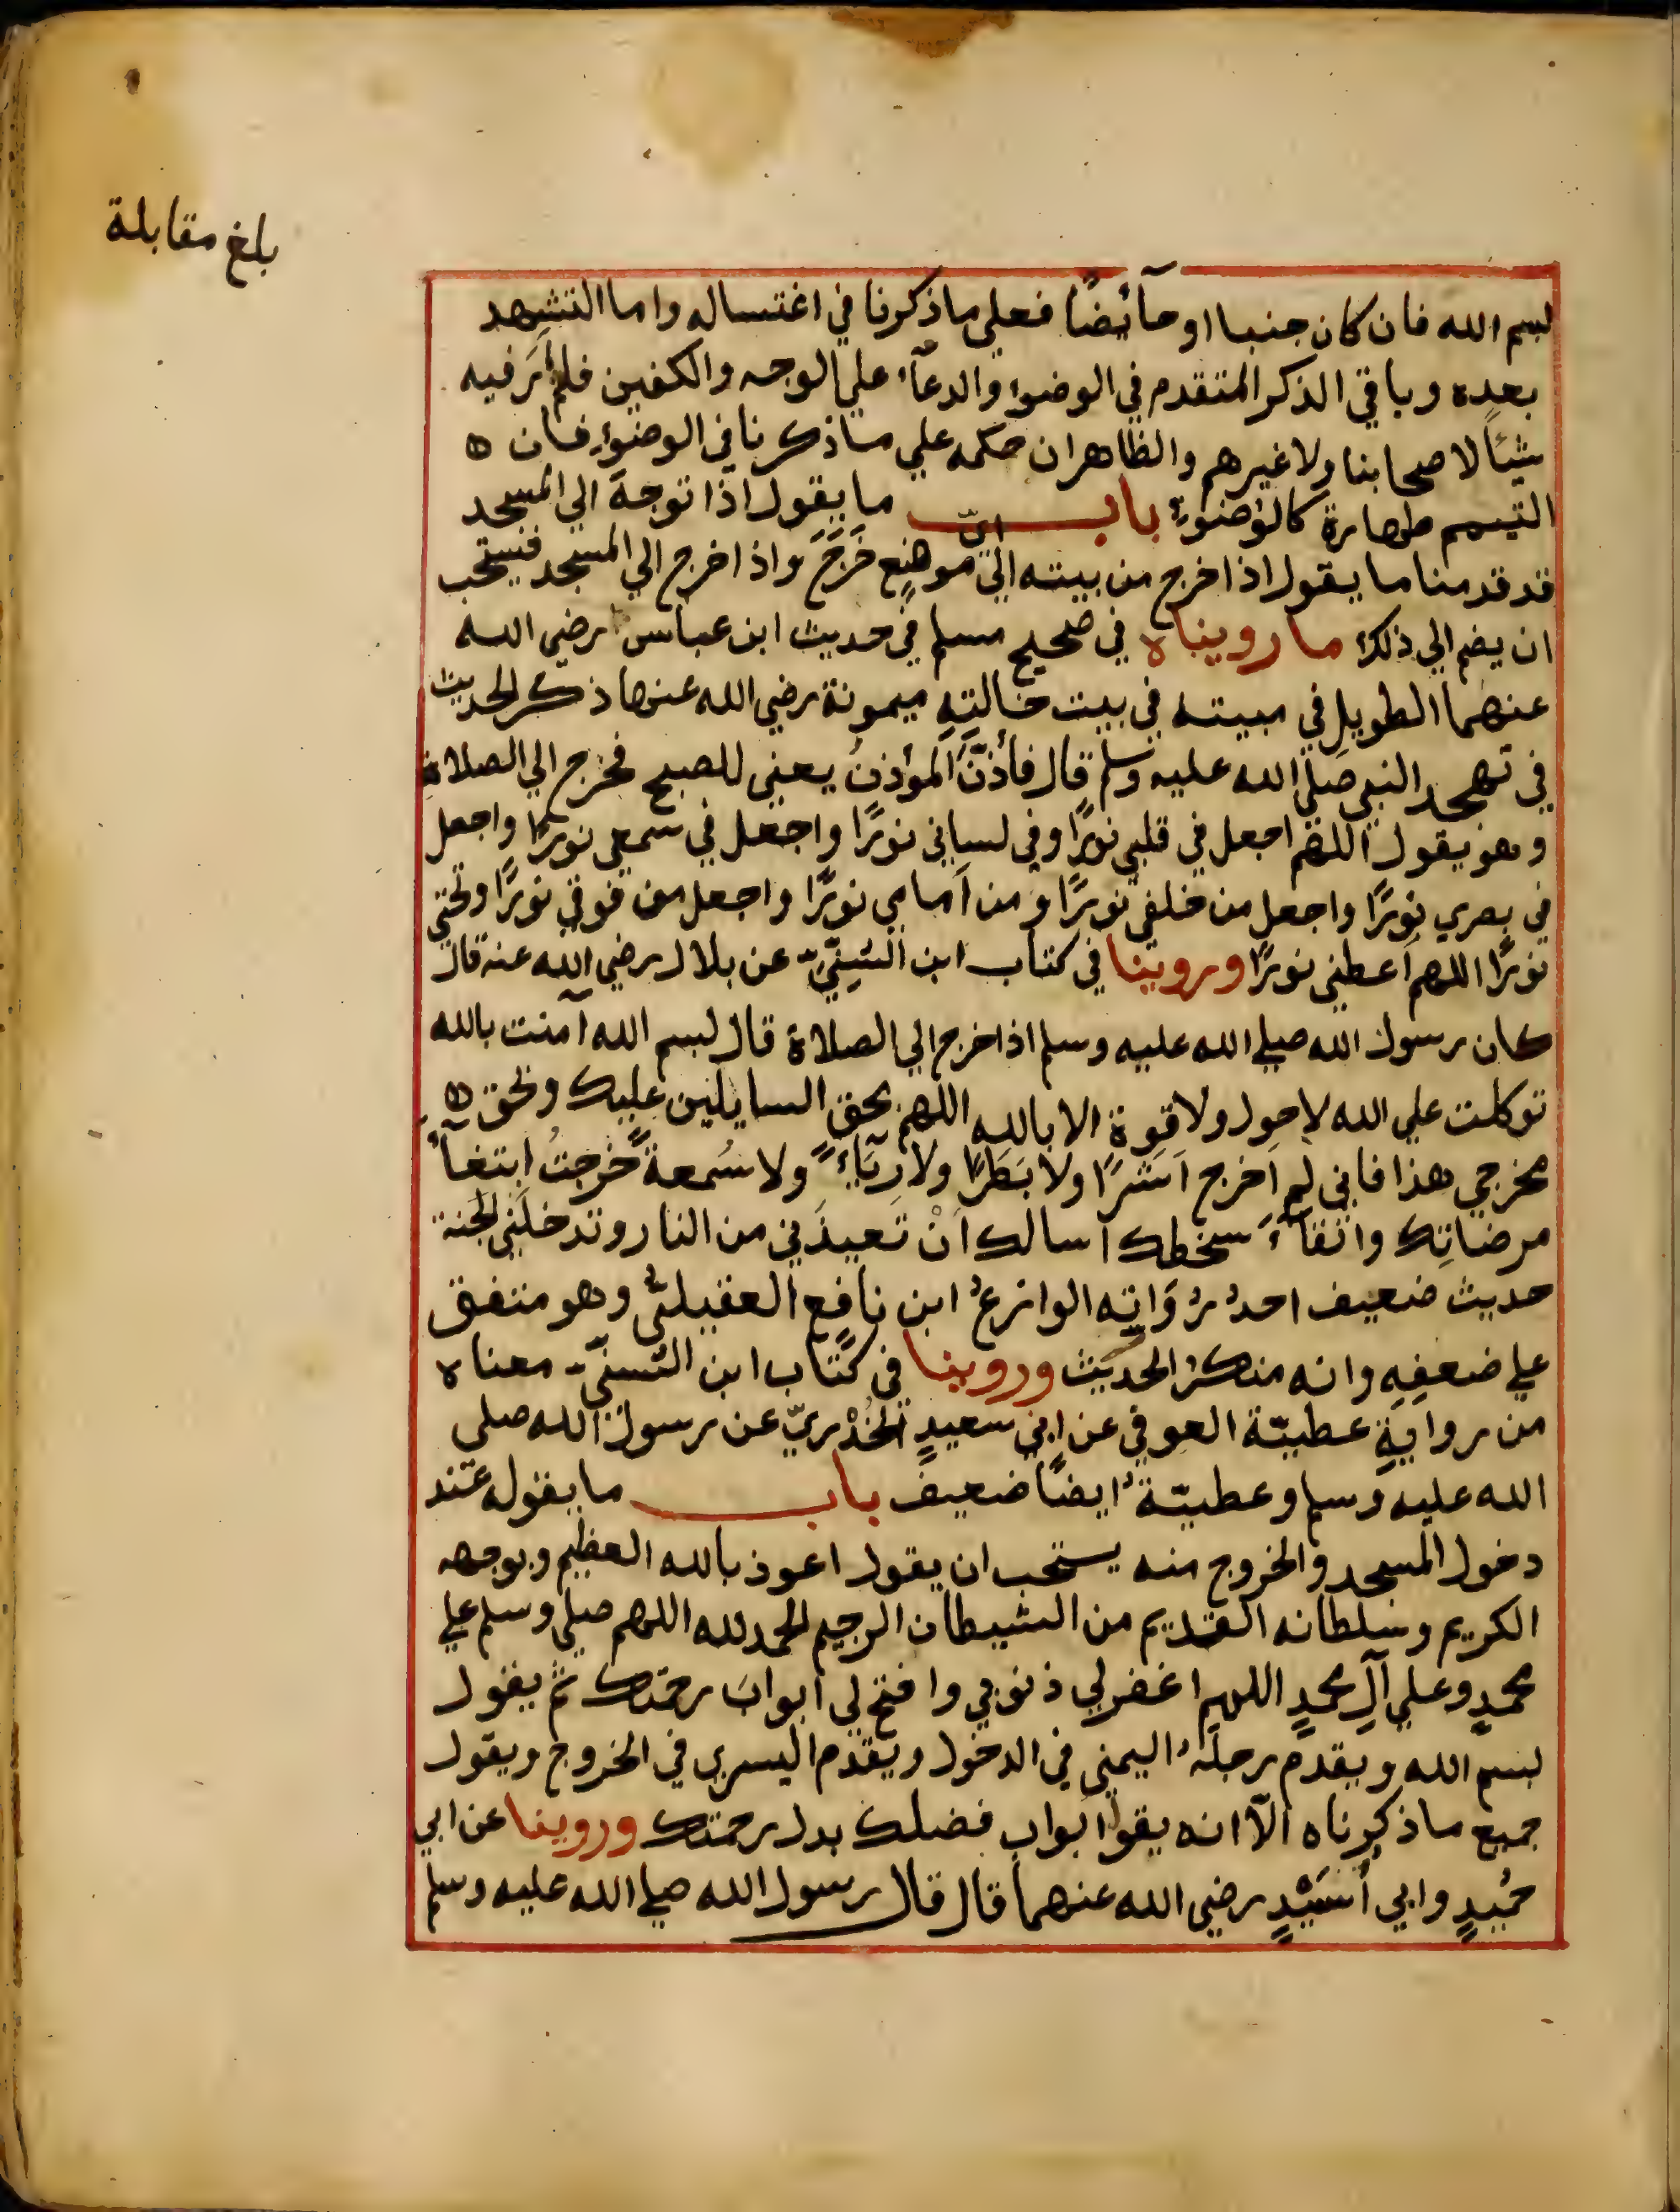 بلغ مقابلة
بسم الله فان كان جنبا او حآئضًا فعلي ما ذكرنا في اغتساله واما التشهد
بعده وباقي الذكر المتقدم في الوضوء والدعآء علي الوجه والكفين فلم أرَ فيه
شيئًا لاصحابنا ولا غيرهم والظاهر ان حكمه علي ما ذكرنا في الوضوءِ فان
التيمم طهارة كالوضوءِ باب ما يقول اذا توجهَ الي المسجد
قد قدمنا ما يقول اذا خرج من بيته الي ايّ موضِعٍ خَرَجَ واذا خرج الي المسجد فيستحب
ان يضم الي ذلك ما رويناه في صحيح مسلم في حديث ابن عباس رضي الله
عنهما الطويلِ في مبيته في بيت خالتِهِ ميمونة رضي الله عنها ذكر الحديث
في تهجد النبي صلي الله عليه وسلم قال فأذّنَ المؤذنُ يعني للصبح فخرج الي الصلاة
وهو يقول اللهم اجعل في قلبي نورًا وفي لساني نورًا واجعل في سمعي نورًا واجعل
في بصري نورًا واجعل من خلفي نورًا ومن اَمامي نورًا واجعل من فوقي نورًا وتحتي
نورًا اللهم اَعطني نورًا وروينا في كتاب ابن السُنِّيّ عن بلال رضي الله عنه قال
كان رسول الله صلي الله عليه وسلم اذا خرج الي الصلاة قال بسم الله آمنت بالله
توكلت علي الله لا حول ولا قوة الا بالله اللهم بحق السايلين عليك وبحق
مخرجي هذا فاني لم اَخرج اَشَرًا ولا بَطَرًا ولا رِيَآءً ولا سُمعةً خرجتُ ابتغآءَ
مرضاتِك واتقآءَ سخطك اسالك اَنْ تعيذَني من النار وتدخلَني الجنة
حديث ضعيف احدُ رُوَاتِه الوازعُ ابن نافِع العقيليُّ وهو متفق
علي ضعفِهِ وانه منكرُ الحديث وروينا في كتاب ابن السنيّ معناه
من روايةِ عطيّة العوفي عن ابي سعيدٍ الخُدْريّ عن رسول الله صلي
الله عليه وسلم وعطيّةُ ايضًا ضعيف باب ما يقوله عند
دخول المسجد والخروج منه يستحب ان يقول اعوذ بالله العظيم وبوجهه
الكريم وسلطانه القديم من الشيطان الرجيم الحمد لله اللهم صلي وسلم علي
محمدٍ وعلي آلِ محمدٍ اللهم اغفر لي ذنوبي وافتح لي ابوابَ رحمتك ثم يقول
بسم الله ويقدم رجلَهُ اليمني في الدخول ويقدم اليسري في الخروج ويقول
جميع ما ذكرناه الآ انه يقول ابواب فضلك بدل رحمتك وروينا عن ابي
حميدٍ وابي أُسَيْدٍ رضي الله عنهما قال قال رسول الله صلي الله عليه وسلم